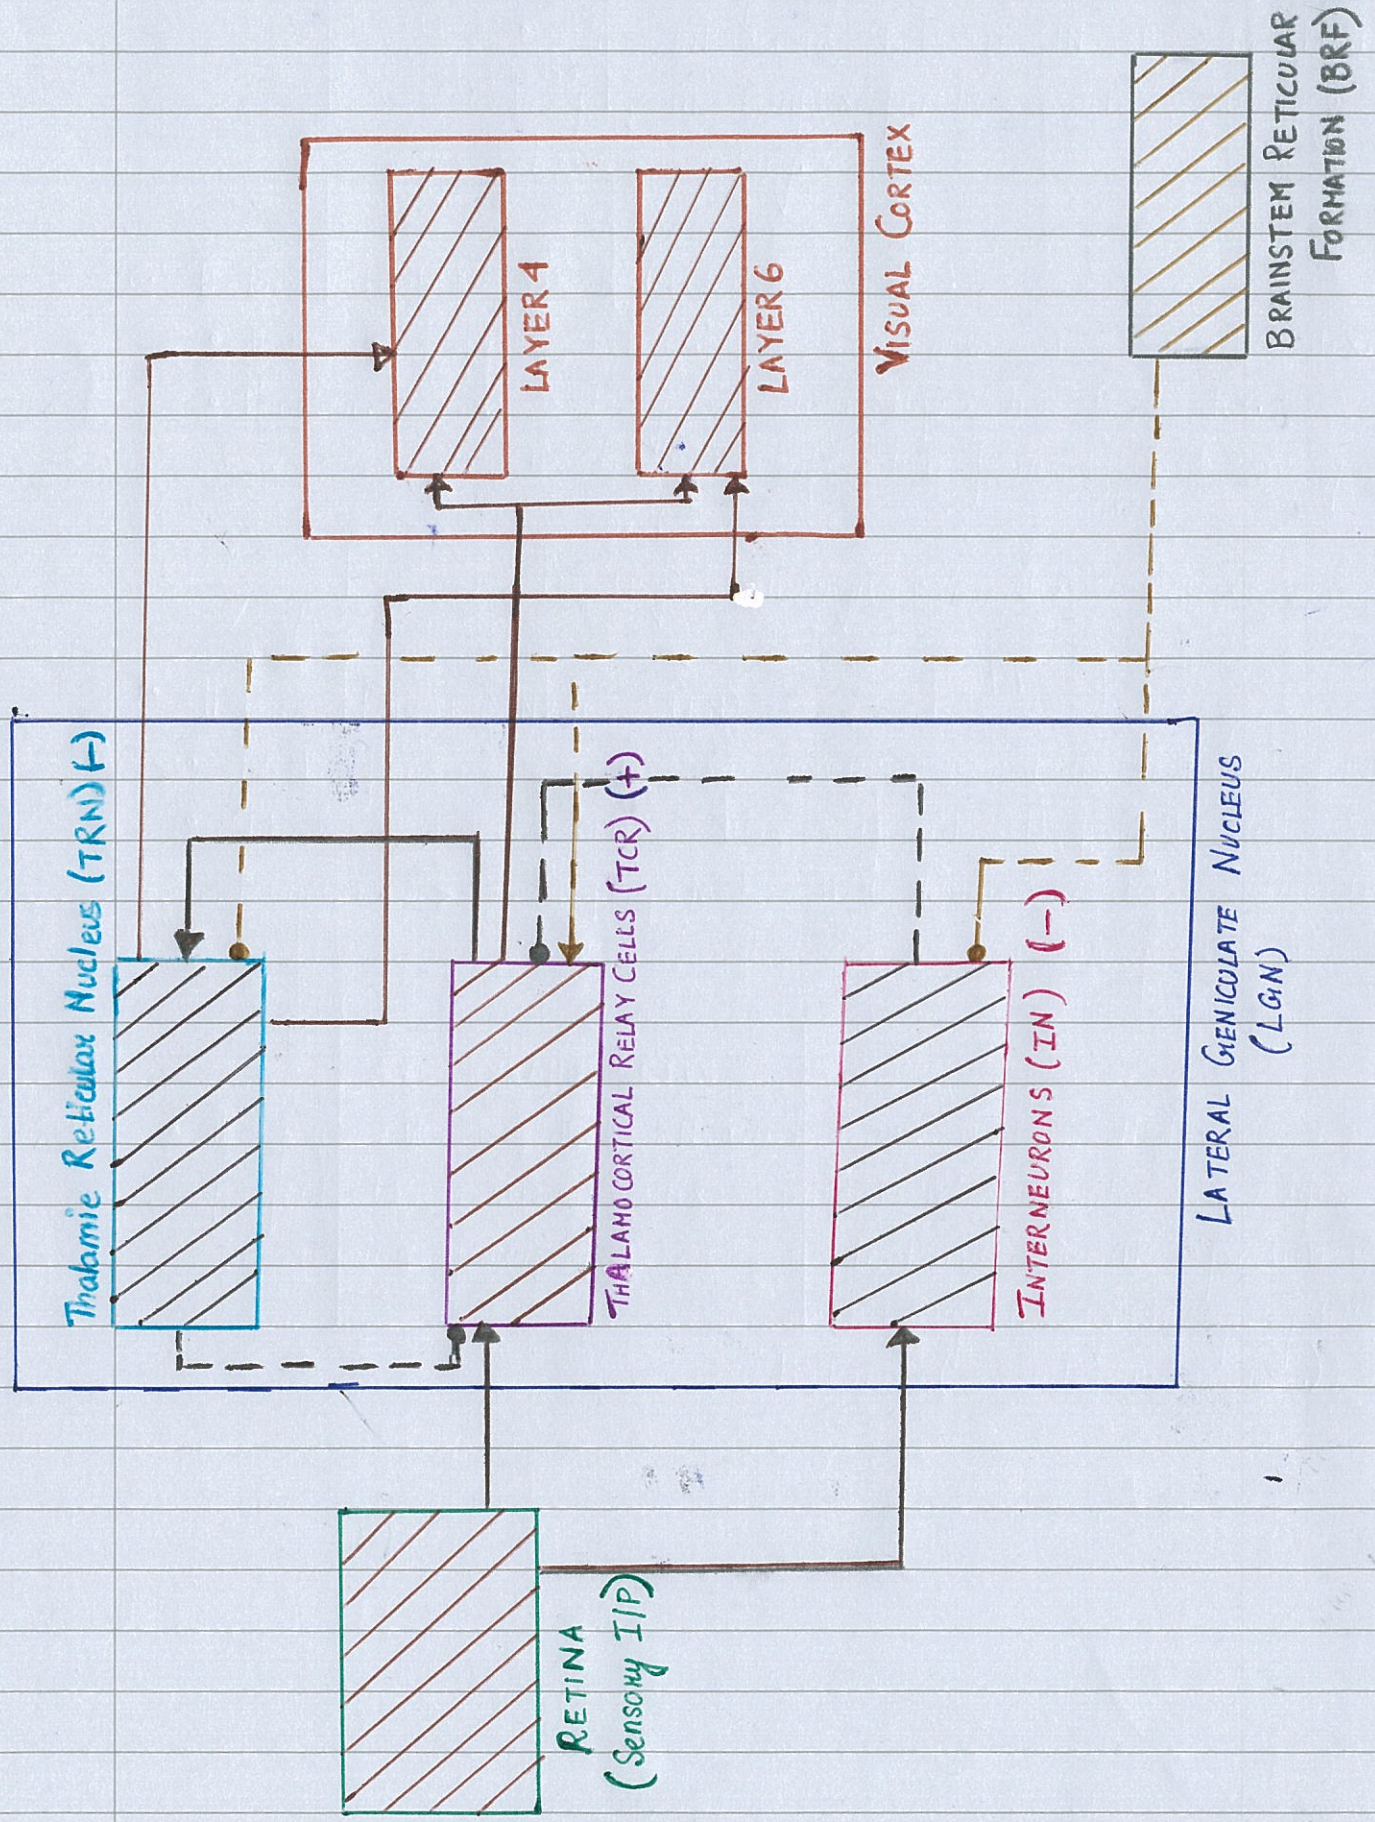 Thalamic Reticular Nucleus (TRN) (-)
THALAMOCORTICAL RELAY CELLS (TCR) (+)
INTERNEURONS (IN) (-)
LATERAL GENICULATE NUCLEUS
(LGN)
RETINA
(Sensory I/P)
LAYER 4
LAYER 6
VISUAL CORTEX
BRAINSTEM RETICULAR
FORMATION (BRF)